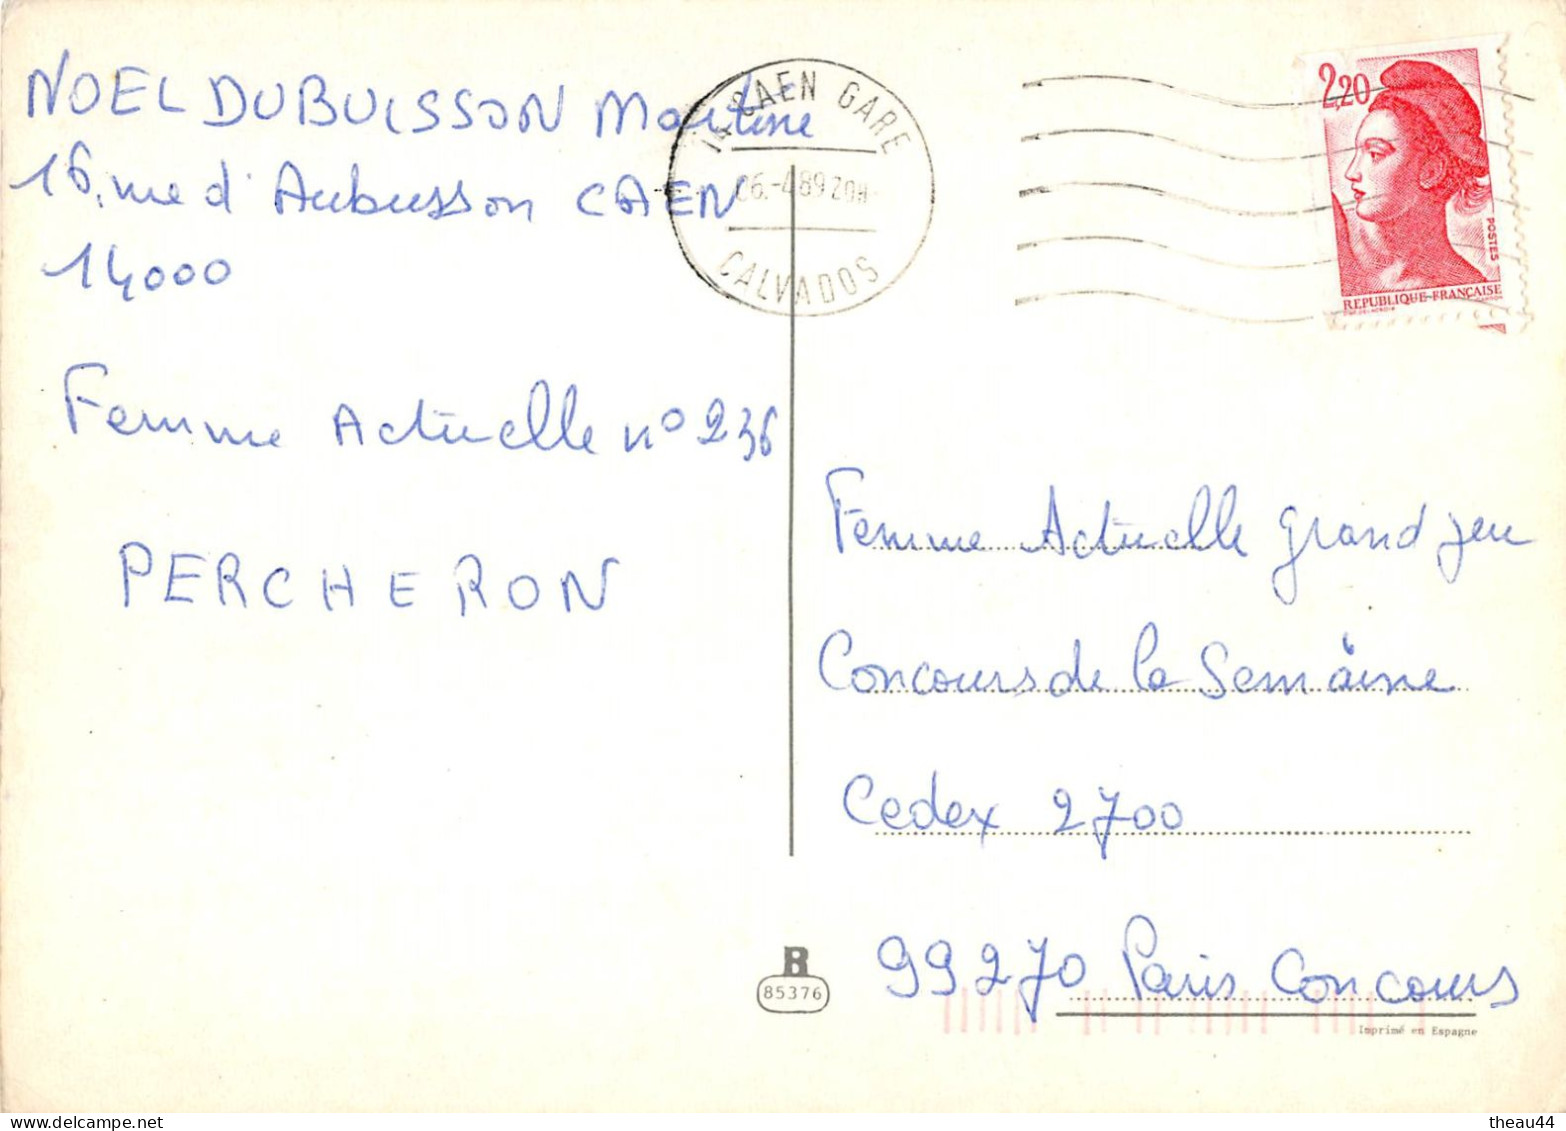 NOEL DUBUISSON Martine
16, rue d'Aubusson CAEN
14000
Femme Actuelle n° 236
PERCHERON
14 CAEN GARE
06.-4 89 20H
CALVADOS
2,20
POSTES
REPUBLIQUE-FRANÇAISE
Femme Actuelle grand jeu
Concours de la Semaine
Cedex 2700
99270 Paris Concours
B
85376
Imprimé en Espagne
theau44